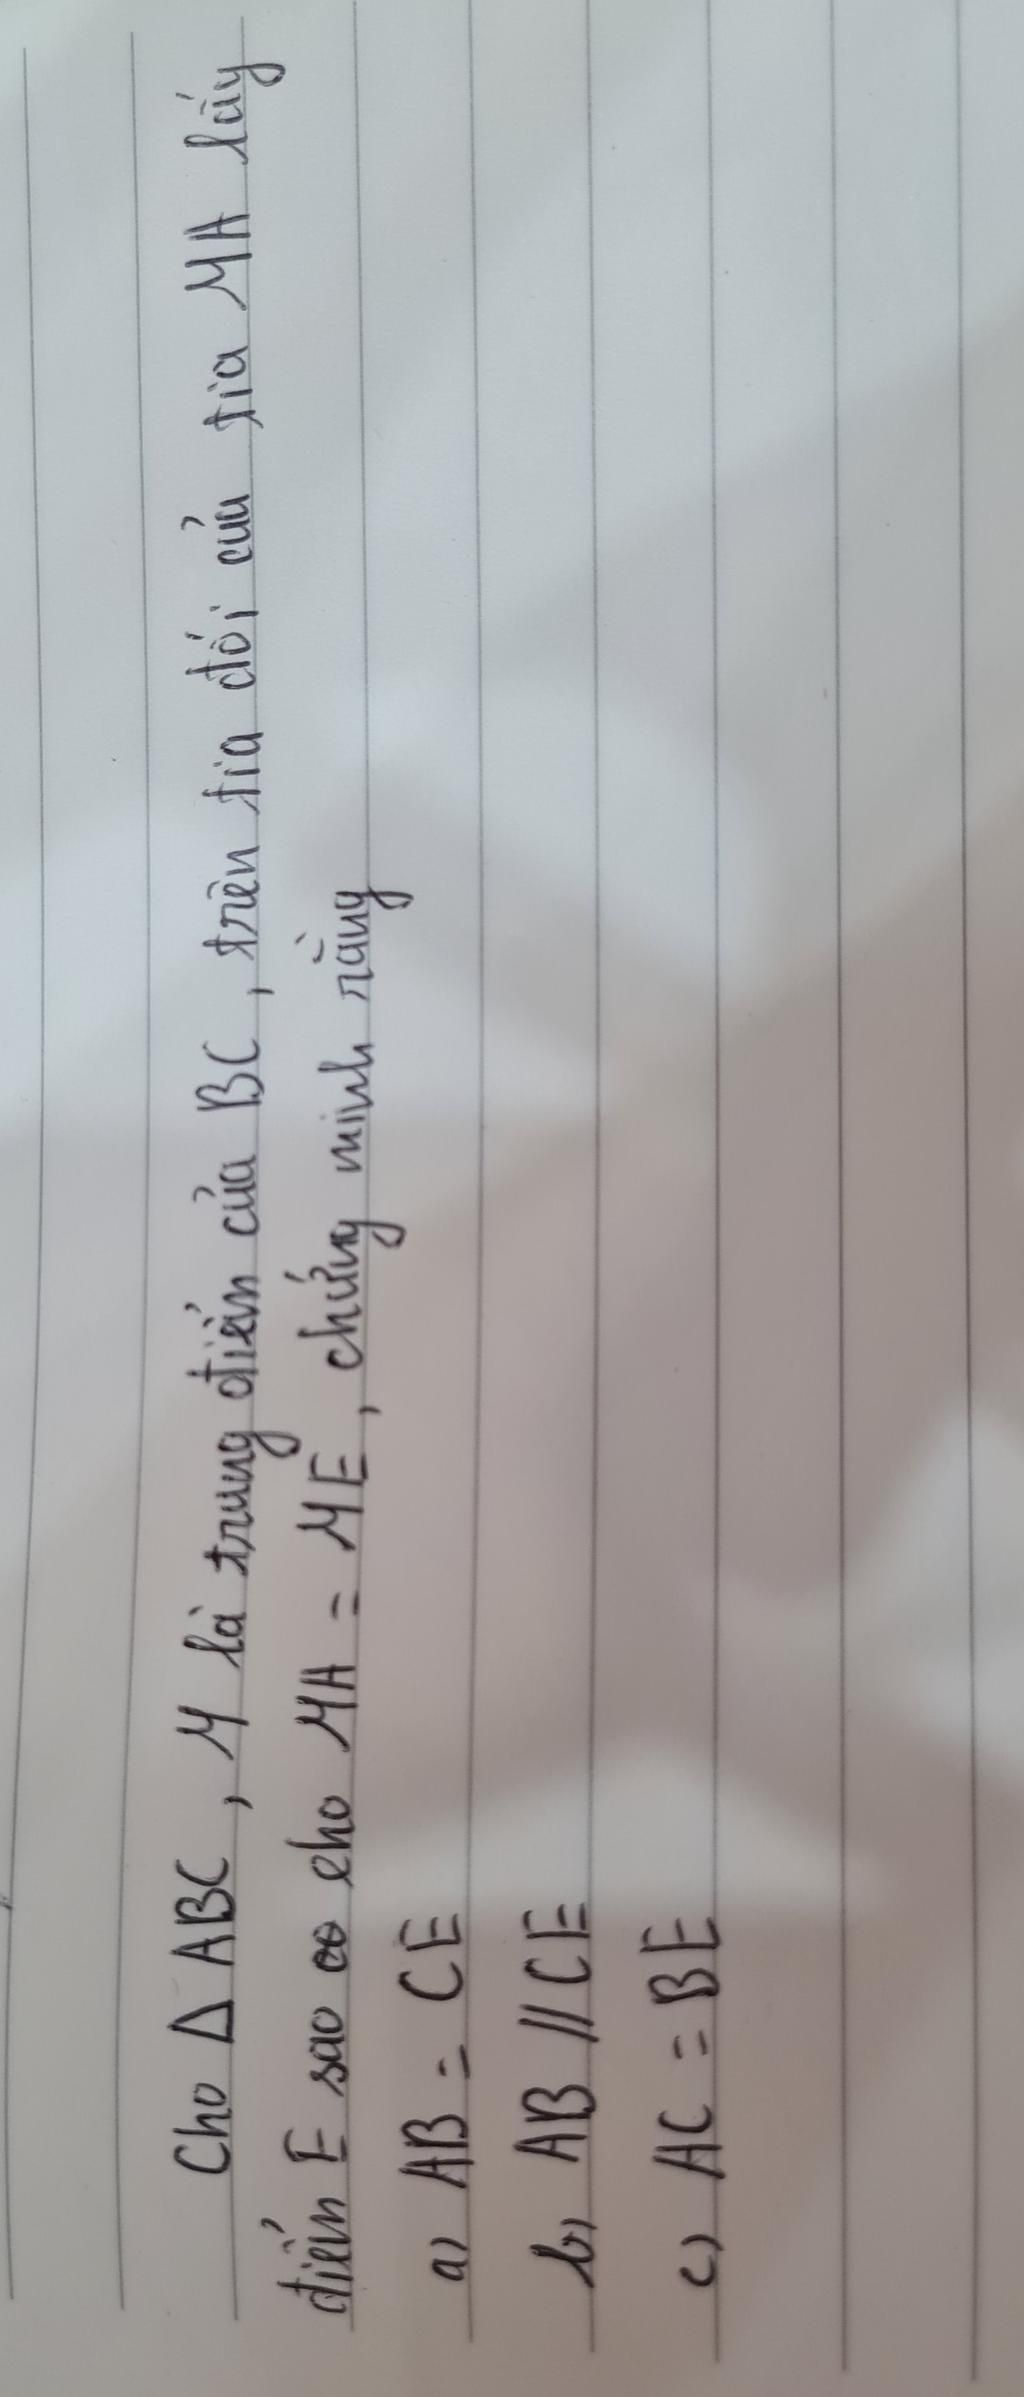 Cho Δ ABC, M là trung điểm của BC, trên tia đối của tia MA lấy
điểm E sao cho MA = ME, chứng minh rằng
a) AB = CE
b) AB // CE
c) AC = BE